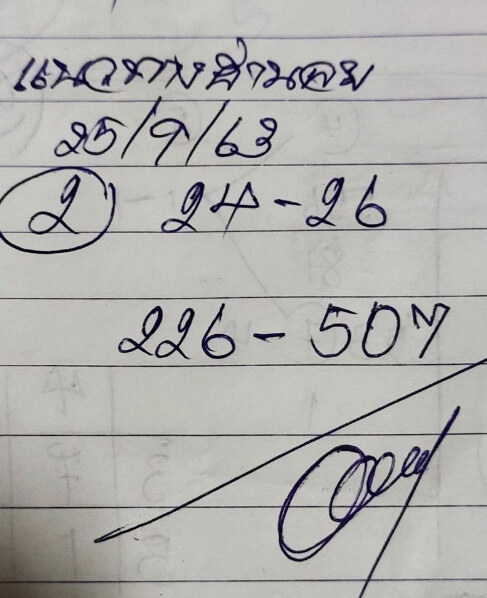 แนวทางฮานอย
25/9/63
2 24-26
226-507